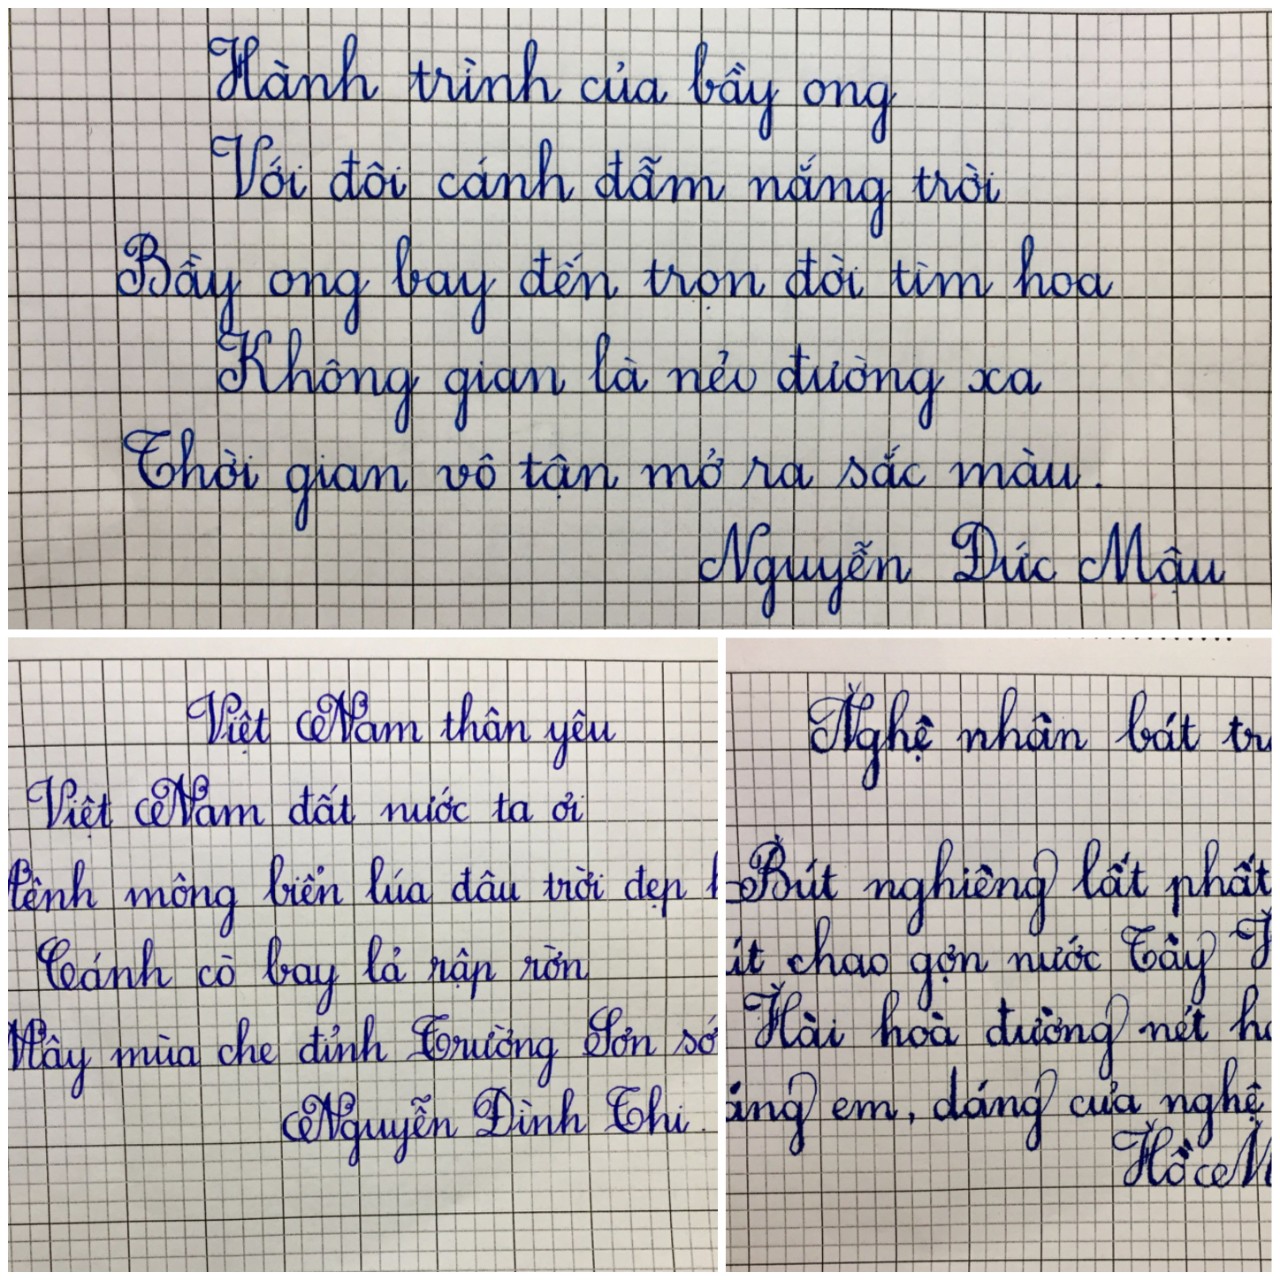 Hành trình của bầy ong
Với đôi cánh đẫm nắng trời
Bầy ong bay đến trọn đời tìm hoa
Không gian là nẻo đường xa
Thời gian vô tận mở ra sắc màu.
Nguyễn Đức Mậu
Việt Nam thân yêu
Việt Nam đất nước ta ơi
mông biển lúa đâu trời đẹp
Cánh cò bay lả rập rờn
Mây mùa che đỉnh Trường Sơn
Nguyễn Đình Thi.
Nghệ nhân bát
Bút nghiêng lất phất
chao gợn nước Tây
Hài hoà đường nét
em, dáng của nghệ
Hồ